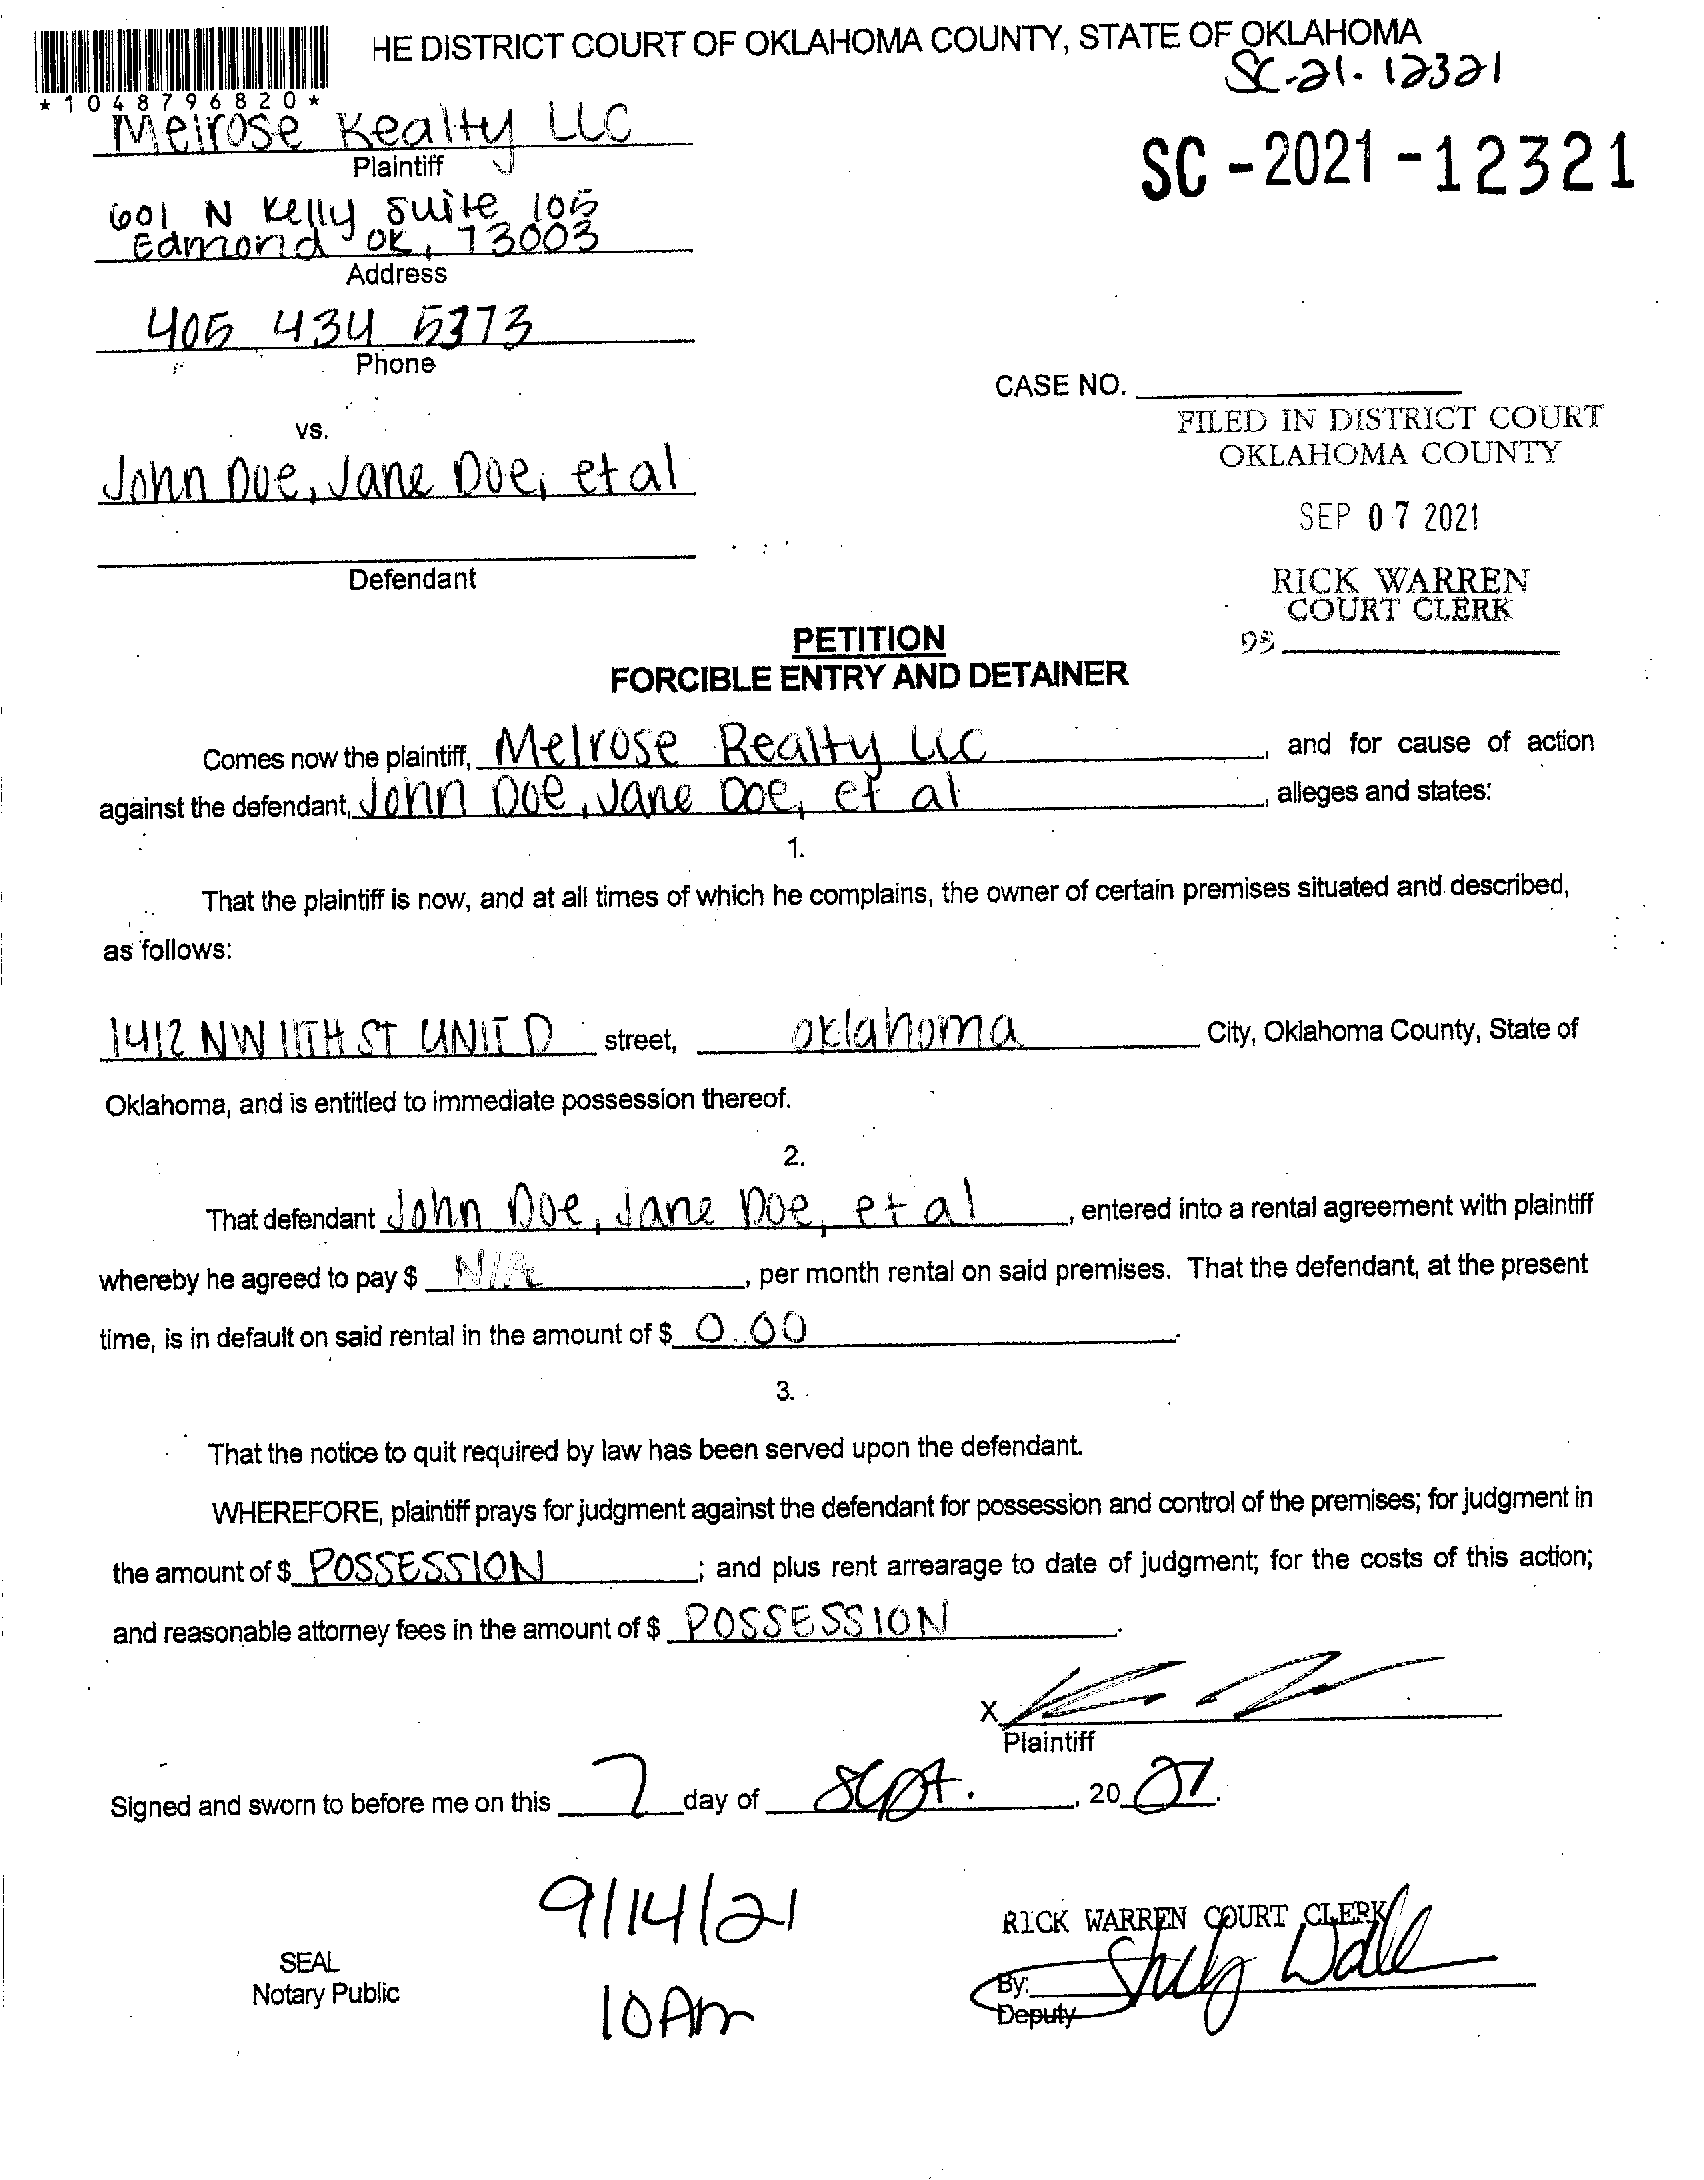 HE DISTRICT COURT OF OKLAHOMA COUNTY, STATE OF OKLAHOMA
SC-21-12321
*1048796820*
Melrose Realty LLC
Plaintiff
SC-2021-12321
601 N Kelly Suite 105
Edmond OK, 73003
Address
405 434 5373
Phone
CASE NO.
FILED IN DISTRICT COURT
OKLAHOMA COUNTY
vs.
John Doe, Jane Doe, et al
SEP 07 2021
Defendant
RICK WARREN
COURT CLERK
PETITION
FORCIBLE ENTRY AND DETAINER
Comes now the plaintiff, Melrose Realty LLC, and for cause of action
against the defendant, John Doe, Jane Doe, et al, alleges and states:
1.
That the plaintiff is now, and at all times of which he complains, the owner of certain premises situated and described,
as follows:
1412 NW 11TH ST UNIT D street, Oklahoma City, Oklahoma County, State of
Oklahoma, and is entitled to immediate possession thereof.
2.
That defendant John Doe, Jane Doe, et al, entered into a rental agreement with plaintiff
whereby he agreed to pay $ N/A, per month rental on said premises. That the defendant, at the present
time, is in default on said rental in the amount of $ 0.00.
3.
That the notice to quit required by law has been served upon the defendant.
WHEREFORE, plaintiff prays for judgment against the defendant for possession and control of the premises; for judgment in
the amount of $ POSSESSION; and plus rent arrearage to date of judgment; for the costs of this action;
and reasonable attorney fees in the amount of $ POSSESSION.
X
Plaintiff
Signed and sworn to before me on this 7 day of Sept., 2021.
9/14/21
RICK WARREN COURT CLERK
SEAL
Notary Public
By:
Deputy
10Am